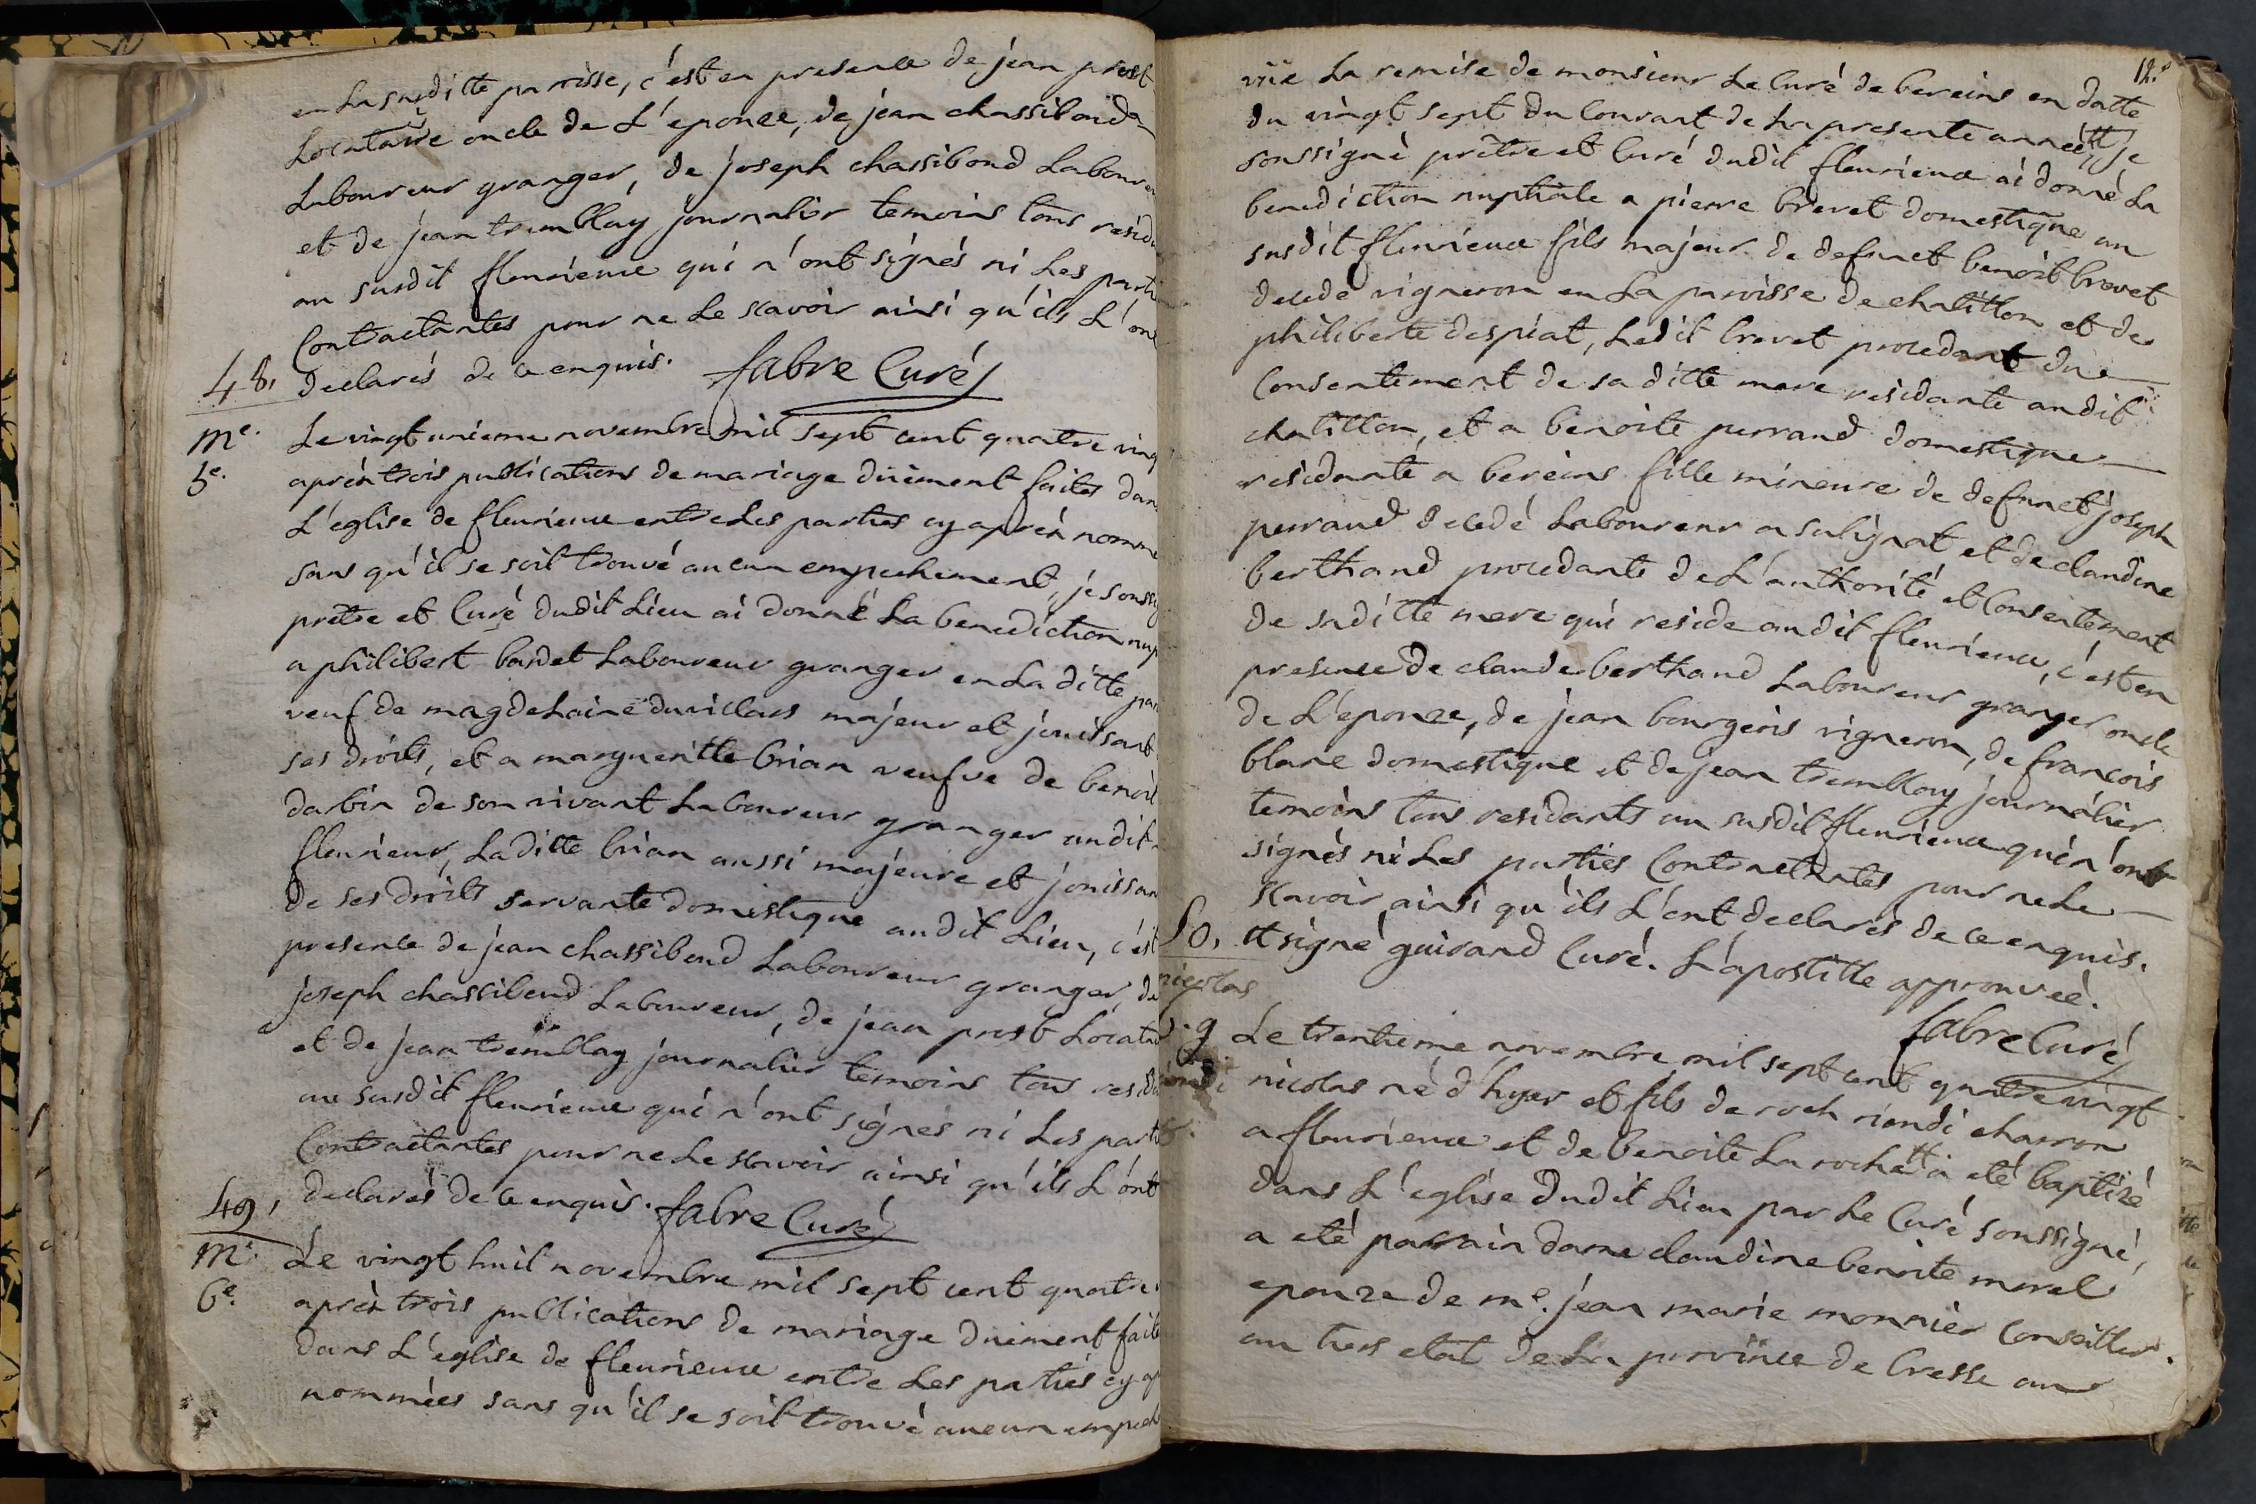 en La susditte paroisse, c'est en presence de jean prost
Locataire oncle de L'epouze, de jean chassiboud
Laboureur granger, de joseph chassiboud Laboureu
et de jean tremblay journalier temoins tous resid
au susdit fleurieux qui n'ont signés ni Les parti
Contractantes pour ne Le scavoir ainsi qu'ils L'ont
declarés de ce enquis. fabre Curé
48,
me.
5e.
Le vingt unieme novembre mil sept cent quatre ving
aprèx trois publications de mariage düement faites dan
L'eglise de fleurieux entre Les parties cy aprèx nomme
sans qu'il se soit trouvé aucun empechement, je soussig
prêtre et Curé dudit Lieu ai donné La benediction nup
a philibert bardet Laboureur granger en La ditte par
veuf de magdelaine duvillars majeur et jouissant
ses droits, et a margueritte brian veufve de benoit
darbin de son vivant Laboureur granger audit
fleurieux, Laditte brian aussi majeure et jouissan
de ses droits servante domestique audit Lieu, c'est
presence de jean chassiboud Laboureur granger, de
joseph chassiboud Laboureur, de jean prost Locatai
et de jean tremblay journalier temoins tous resid
au susdit fleurieux qui n'ont signés ni Les part
Contractantes pour ne Le scavoir ainsi qu'ils L'ont
declarés de ce enquis. fabre Curé
49,
me.
6e.
Le vingt huit novembre mil sept cent quatre
aprèx trois publications de mariage duement faite
dans L'eglise de fleurieux entre Les parties cy ap
nommées sans qu'il se soit trouvé aucun empech
12.e
vüe La remise de monsieur Le Curé de bereins en datte
du vingt sept du Courant de La presente année, je
soussigné prêtre et Curé dudit fleurieux ai donné La
benediction nuptiale a pierre brevet domestique au
susdit fleurieux fils majeur de defunct benoit brevet
decedé vigneron en La paroisse de chatillon et de
philiberte despiat, Ledit brevet procedant du
Consentement de sa ditte mere residante audit
chatillon, et a benoite perraud domestique
residante a bereins fille mineure de defunct joseph
perraud decedé Laboureur a sulignat et de claudine
berthaud procedante de L'authorité et Consentement
de saditte mere qui reside audit fleurieux, c'est en
presence de claude berthaud Laboureur granger oncle
de L'epouze, de jean bourgeois vigneron, de françois
blanc domestique et de jean tremblay journalier
temoins tous residants au susdit fleurieux qui n'ont
signés ni Les parties Contractantes pour ne Le
scavoir ainsi qu'ils L'ont declarés de ce enquis.
tt signé guiraud Curé. L'apostille approuvée.
fabre Curé
50,
nicolas
Le trentieme novembre mil sept cent quatre vingt
nicolas né d'hyer et fils de roch riondi charron
a fleurieux et de benoite La roche tt a eté baptizé
dans L'eglise dudit Lieu par Le Curé soussigné,
a eté parrain dame claudine benoite morel
epouze de me. jean marie monnier Conseiller
au tiers etat de La province de bresse au